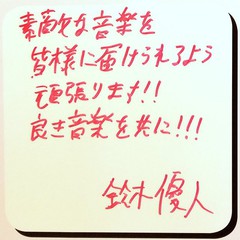 素敵な音楽を
皆様に届けられるよう
頑張ります!!
良き音楽を共に!!!
鈴木優人